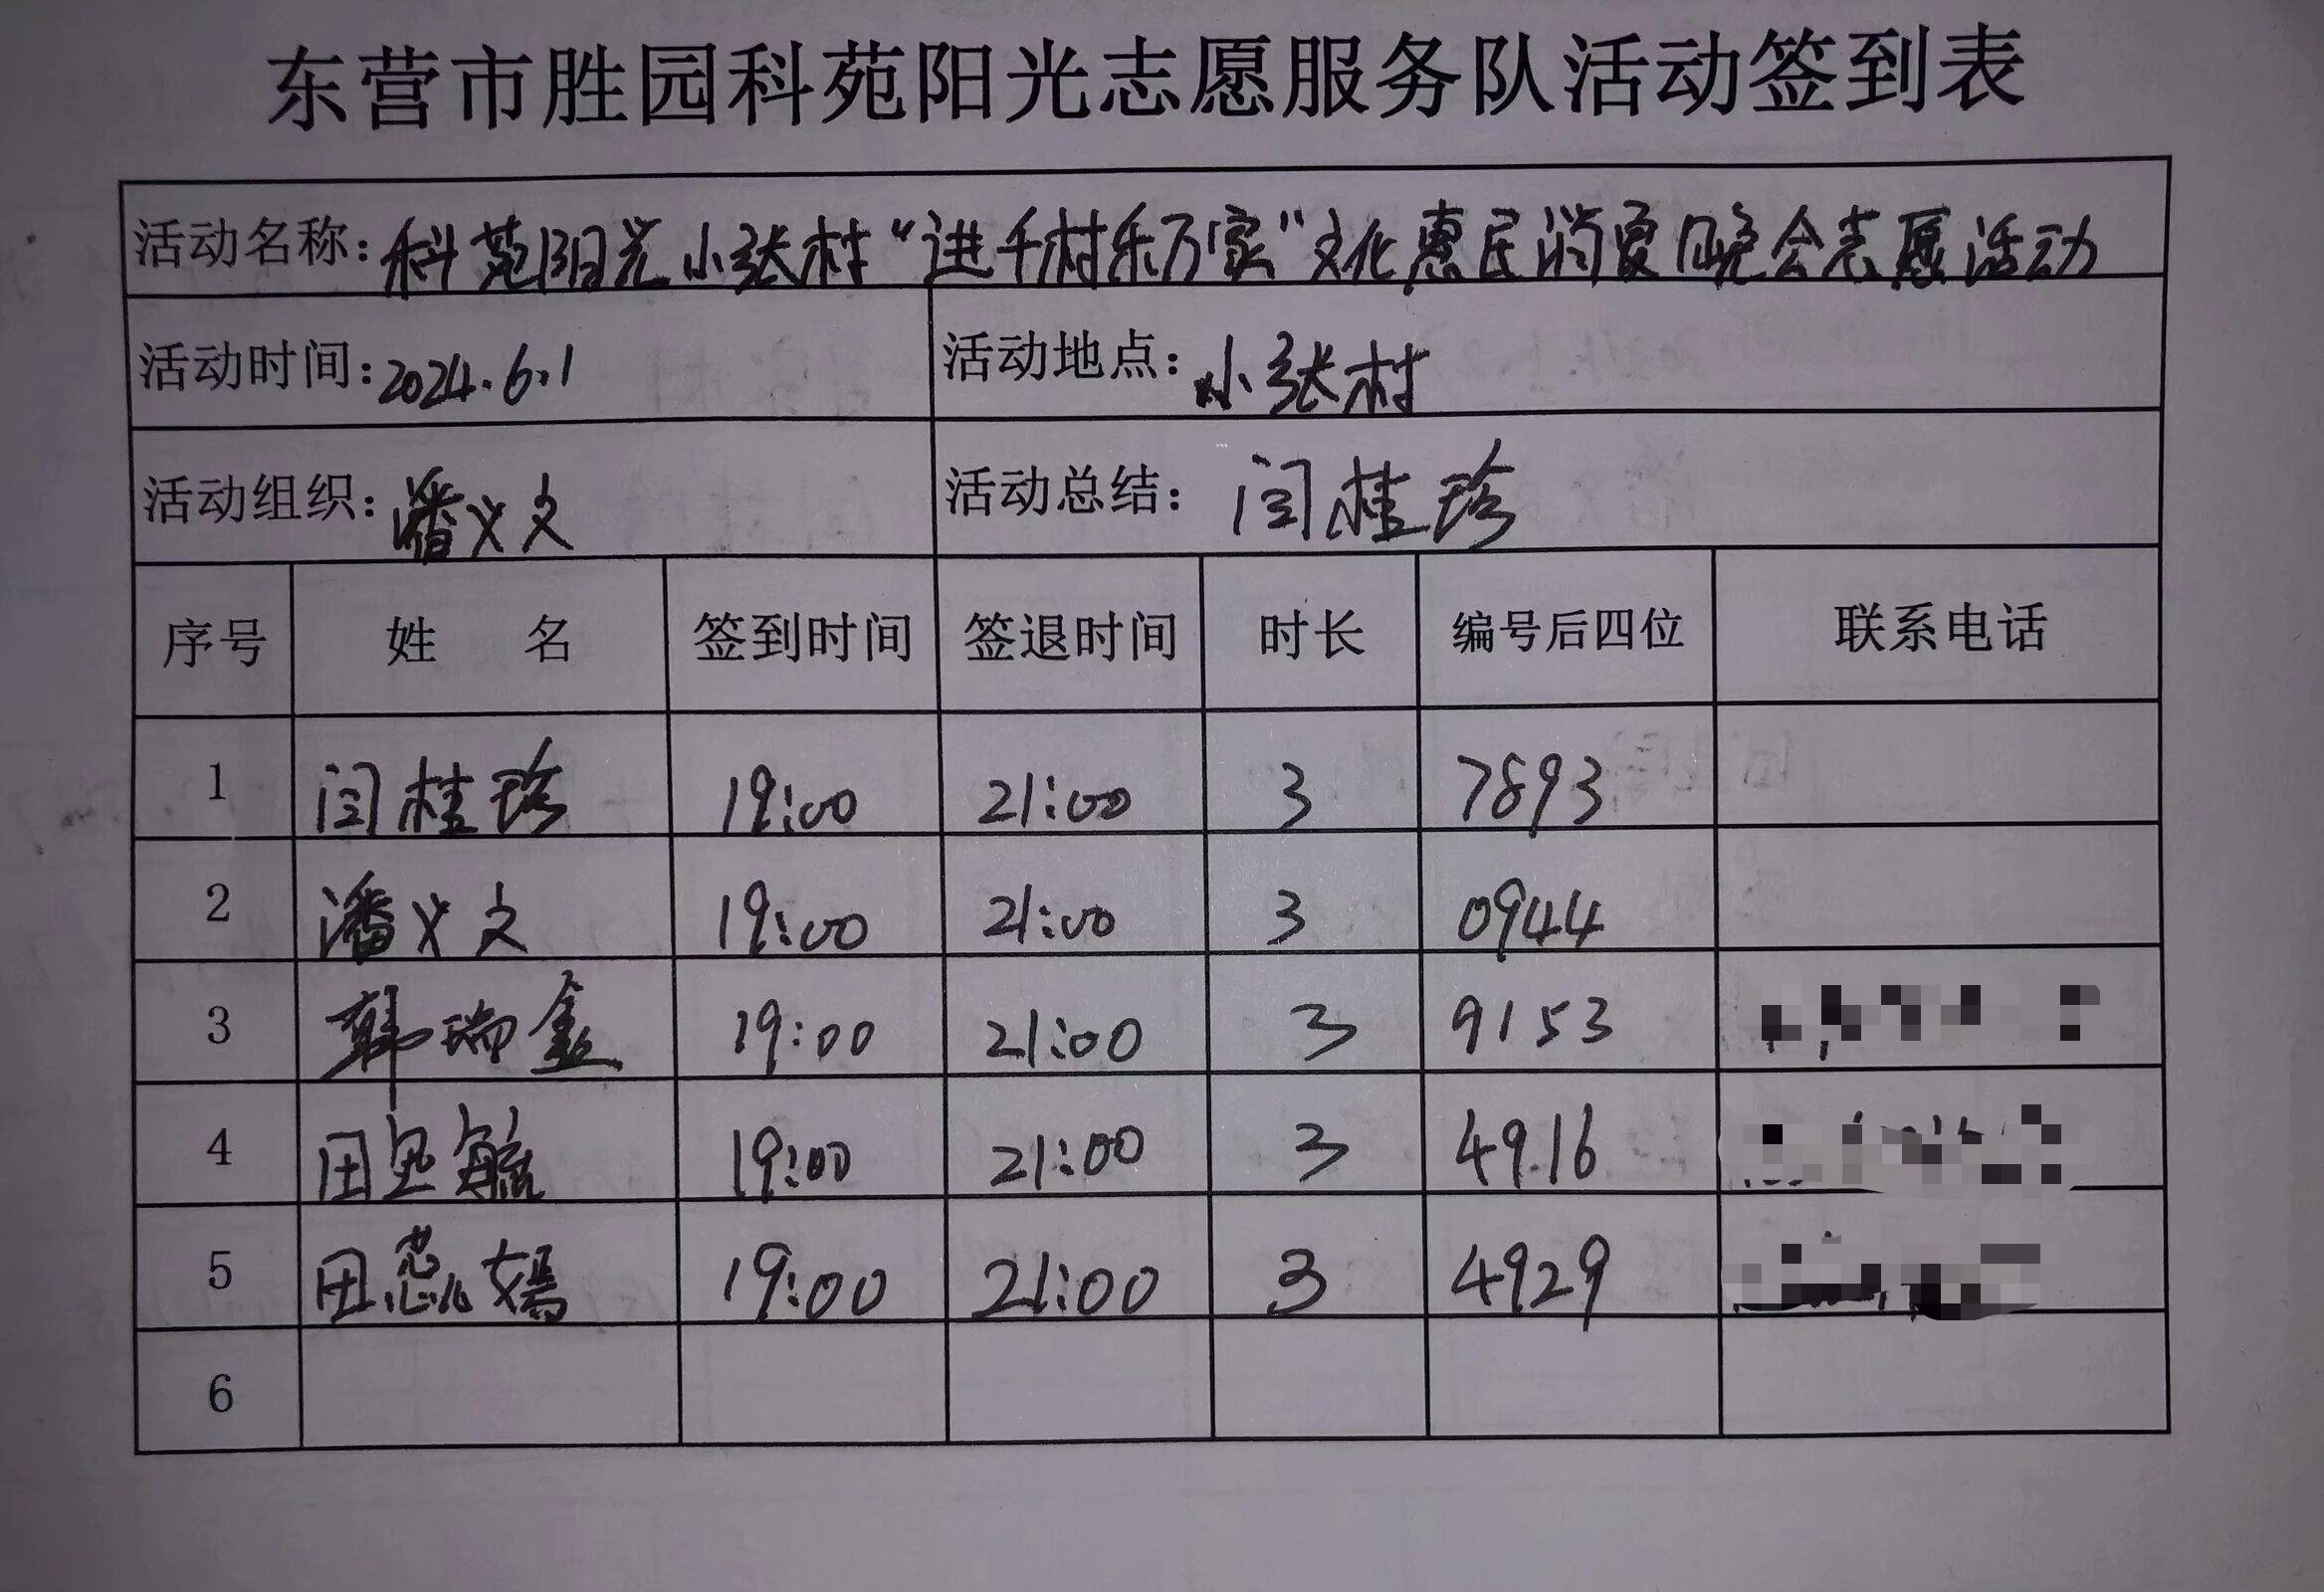 东营市胜园科苑阳光志愿服务队活动签到表
活动名称：科苑阳光小张村“进千村乐万家”文化惠民消夏晚会志愿活动
活动时间：2024.6.1 活动地点：小张村
活动组织：潘义文 活动总结：闫桂珍
序号 姓 名 签到时间 签退时间 时长 编号后四位 联系电话
1 闫桂珍 19:00 21:00 3 7893
2 潘义文 19:00 21:00 3 0944
3 韩瑞鑫 19:00 21:00 3 9153
4 田 毓 19:00 21:00 3 4916
5 田 嫣 19:00 21:00 3 4929
6